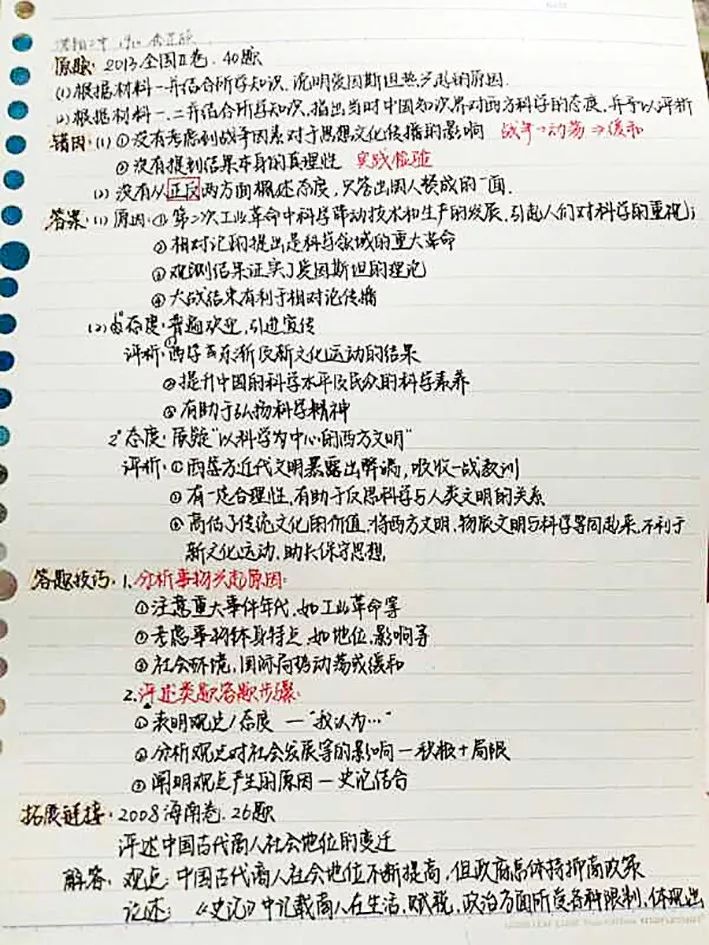 原题：2013.全国Ⅱ卷.40题
(1)根据材料一并结合所学知识,说明爱因斯坦热兴起的原因.
(2)根据材料一.二并结合所学知识,指出当时中国知识界对西方科学的态度,并予以评析
错因：(1)①没有考虑到战争因素对于思想文化传播的影响 战争→动荡⇒缓和
②没有提到结果本身的真理性 实践检验
(2)没有从正反两方面概述态度,只答出国人赞成的一面.
答案：(1)原因：①第二次工业革命中科学带动技术和生产的发展,引起人们对科学的重视;
②相对论的提出是科学领域的重大革命
③观测结果证实了爱因斯坦的理论
④大战结束有利于相对论传播
(2)1°态度：普遍欢迎,引进宣传
评析：①西学东渐及新文化运动的结果
②提升中国的科学水平及民众的科学素养
③有助于弘扬科学精神
2°态度：质疑"以科学为中心的西方文明"
评析：①西方近代文明暴露出弊端,吸收一战教训
②有一定合理性,有助于反思科学与人类文明的关系
③高估了传统文化的价值,将西方文明、物质文明与科学等同起来,不利于
新文化运动,助长保守思想.
答题技巧：1.分析事物兴起原因：
①注意重大事件年代,如工业革命等
②考虑事物本身特点,如地位,影响等
③社会环境,国际局势动荡或缓和
2.评述类题答题步骤：
①表明观点/态度 — "我认为…"
②分析观点对社会发展等的影响 — 积极+局限
③阐明观点产生的原因 — 史论结合
拓展链接：2008海南卷.26题
评述中国古代商人社会地位的变迁
解答：观点：中国古代商人社会地位不断提高,但政府总体持抑商政策
论述：《史记》中记载商人在生活,赋税,政治方面所受各种限制,体现出